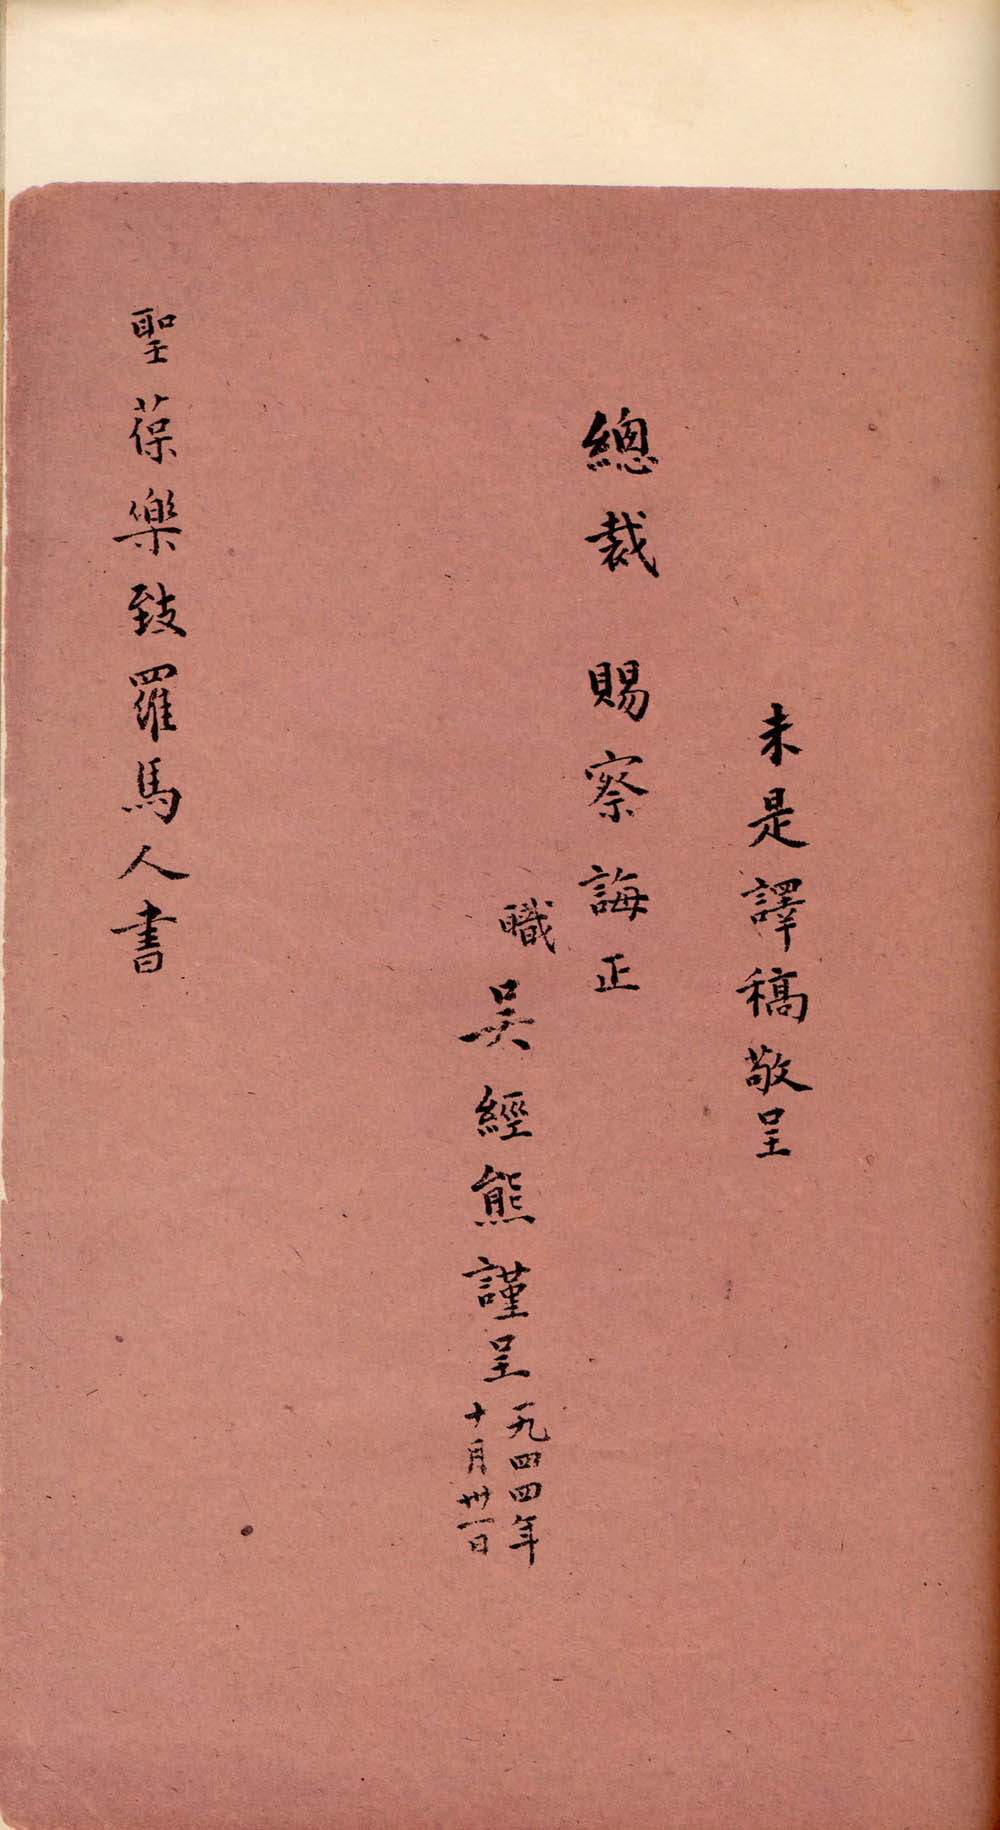 未是譯稿敬呈
總裁 賜察誨正
職吳經熊謹呈
一九四四年
十月卅一日
聖葆樂致羅馬人書